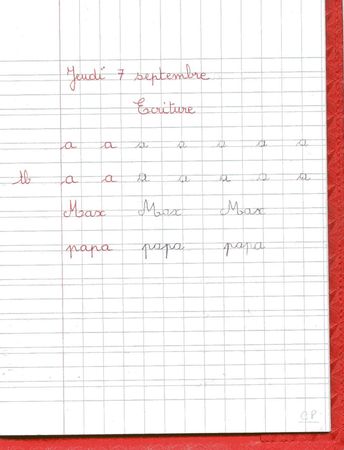 Jeudi 7 septembre
Ecriture
a a a a a a a
tb a a a a a a a
Max Max Max
papa papa papa
CP